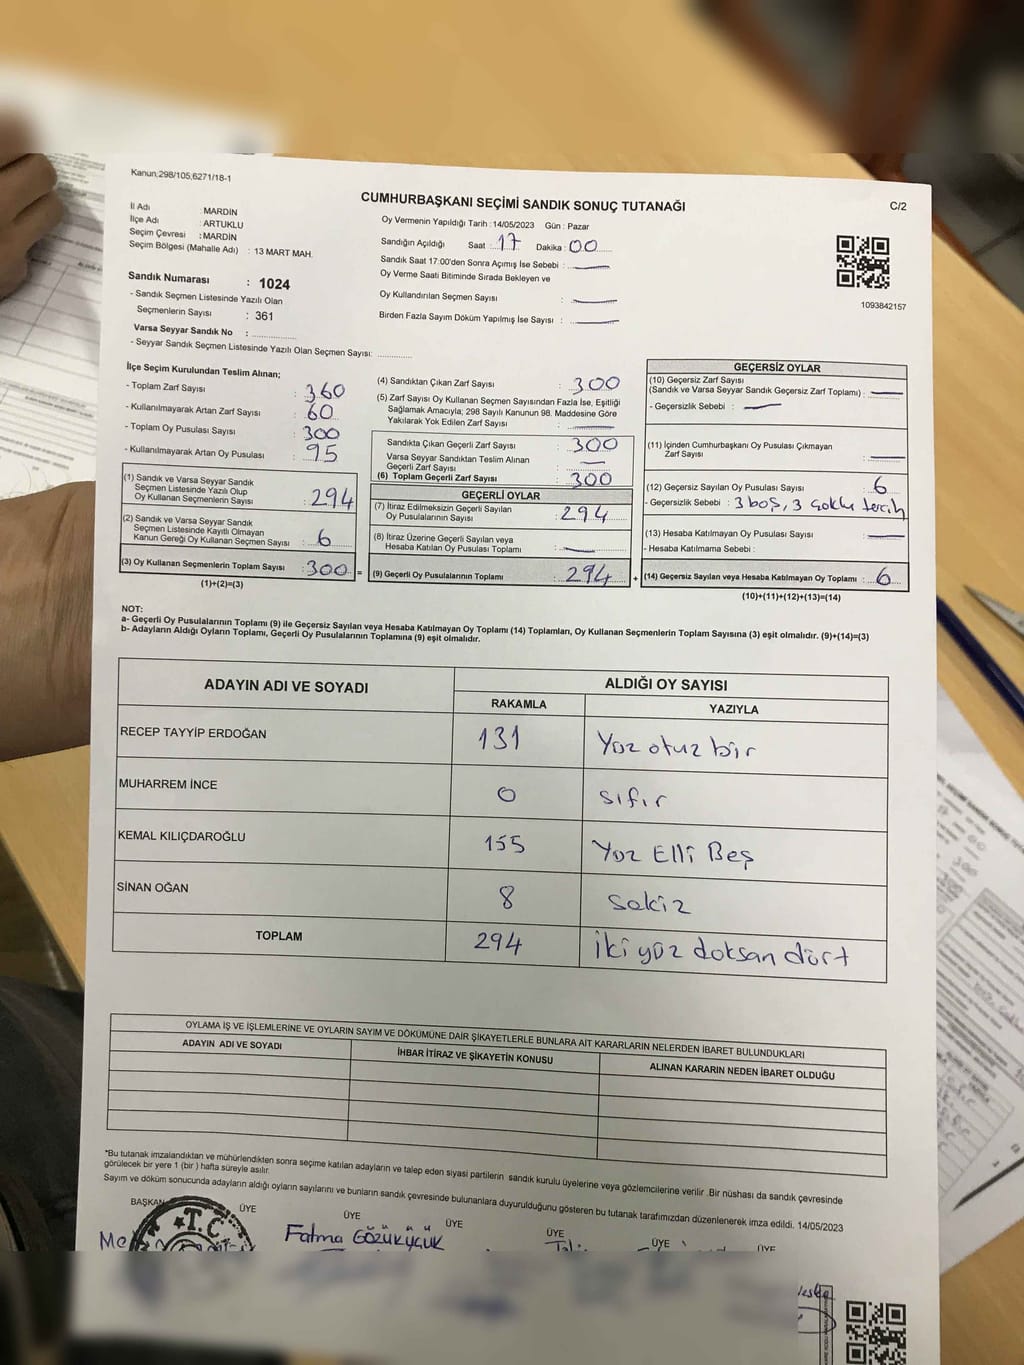 Kanun;298/105,6271/18-1
CUMHURBAŞKANI SEÇİMİ SANDIK SONUÇ TUTANAĞI
C/2
İl Adı : MARDİN
İlçe Adı : ARTUKLU
Seçim Çevresi : MARDİN
Seçim Bölgesi (Mahalle Adı) : 13 MART MAH.
Sandık Numarası : 1024
- Sandık Seçmen Listesinde Yazılı Olan
Seçmenlerin Sayısı : 361
Varsa Seyyar Sandık No :
- Seyyar Sandık Seçmen Listesinde Yazılı Olan Seçmen Sayısı:
Oy Vermenin Yapıldığı Tarih : 14/05/2023 Gün : Pazar
Sandığın Açıldığı Saat : 17 Dakika : 00
Sandık Saat 17:00'den Sonra Açımış İse Sebebi :
Oy Verme Saati Bitiminde Sırada Bekleyen ve
Oy Kullandırılan Seçmen Sayısı :
Birden Fazla Sayım Döküm Yapılmış İse Sayısı :
1093842157
İlçe Seçim Kurulundan Teslim Alınan;
- Toplam Zarf Sayısı : 360
- Kullanılmayarak Artan Zarf Sayısı : 60
- Toplam Oy Pusulası Sayısı : 300
- Kullanılmayarak Artan Oy Pusulası : 95
(1) Sandık ve Varsa Seyyar Sandık
Seçmen Listesinde Yazılı Olup
Oy Kullanan Seçmenlerin Sayısı : 294
(2) Sandık ve Varsa Seyyar Sandık
Seçmen Listesinde Kayıtlı Olmayan
Kanun Gereği Oy Kullanan Seçmen Sayısı : 6
(3) Oy Kullanan Seçmenlerin Toplam Sayısı : 300 =
(1)+(2)=(3)
(4) Sandıktan Çıkan Zarf Sayısı : 300
(5) Zarf Sayısı Oy Kullanan Seçmen Sayısından Fazla İse, Eşitliği
Sağlamak Amacıyla; 298 Sayılı Kanunun 98. Maddesine Göre
Yakılarak Yok Edilen Zarf Sayısı :
Sandıkta Çıkan Geçerli Zarf Sayısı : 300
Varsa Seyyar Sandıktan Teslim Alınan
Geçerli Zarf Sayısı :
(6) Toplam Geçerli Zarf Sayısı : 300
GEÇERLİ OYLAR
(7) İtiraz Edilmeksizin Geçerli Sayılan
Oy Pusulalarının Sayısı : 294
(8) İtiraz Üzerine Geçerli Sayılan veya
Hesaba Katılan Oy Pusulası Toplamı :
(9) Geçerli Oy Pusulalarının Toplamı : 294 +
GEÇERSİZ OYLAR
(10) Geçersiz Zarf Sayısı
(Sandık ve Varsa Seyyar Sandık Geçersiz Zarf Toplamı) :
- Geçersizlik Sebebi :
(11) İçinden Cumhurbaşkanı Oy Pusulası Çıkmayan
Zarf Sayısı :
(12) Geçersiz Sayılan Oy Pusulası Sayısı : 6
- Geçersizlik Sebebi : 3 boş, 3 çoklu tercih
(13) Hesaba Katılmayan Oy Pusulası Sayısı :
- Hesaba Katılmama Sebebi :
(14) Geçersiz Sayılan veya Hesaba Katılmayan Oy Toplamı : 6
(10)+(11)+(12)+(13)=(14)
NOT:
a- Geçerli Oy Pusulalarının Toplamı (9) ile Geçersiz Sayılan veya Hesaba Katılmayan Oy Toplamı (14) Toplamları, Oy Kullanan Seçmenlerin Toplam Sayısına (3) eşit olmalıdır. (9)+(14)=(3)
b- Adayların Aldığı Oyların Toplamı, Geçerli Oy Pusulalarının Toplamına (9) eşit olmalıdır.
ADAYIN ADI VE SOYADI
ALDIĞI OY SAYISI
RAKAMLA YAZIYLA
RECEP TAYYİP ERDOĞAN 131 Yüz otuz bir
MUHARREM İNCE 0 sıfır
KEMAL KILIÇDAROĞLU 155 Yüz Elli Beş
SİNAN OĞAN 8 sekiz
TOPLAM 294 iki yüz doksan dört
OYLAMA İŞ VE İŞLEMLERİNE VE OYLARIN SAYIM VE DÖKÜMÜNE DAİR ŞİKAYETLERLE BUNLARA AİT KARARLARIN NELERDEN İBARET BULUNDUKLARI
ADAYIN ADI VE SOYADI İHBAR İTİRAZ VE ŞİKAYETİN KONUSU ALINAN KARARIN NEDEN İBARET OLDUĞU
*Bu tutanak imzalandıktan ve mühürlendikten sonra seçime katılan adayların ve talep eden siyasi partilerin sandık kurulu üyelerine veya gözlemcilerine verilir .Bir nüshası da sandık çevresinde
görülecek bir yere 1 (bir ) hafta süreyle asılır.
Sayım ve döküm sonucunda adayların aldığı oyların sayılarını ve bunların sandık çevresinde bulunanlara duyurulduğunu gösteren bu tutanak tarafımızdan düzenlenerek imza edildi. 14/05/2023
BAŞKAN ÜYE ÜYE ÜYE ÜYE ÜYE ÜYE
T.C.
Fatma GÖZÜKÜÇÜK